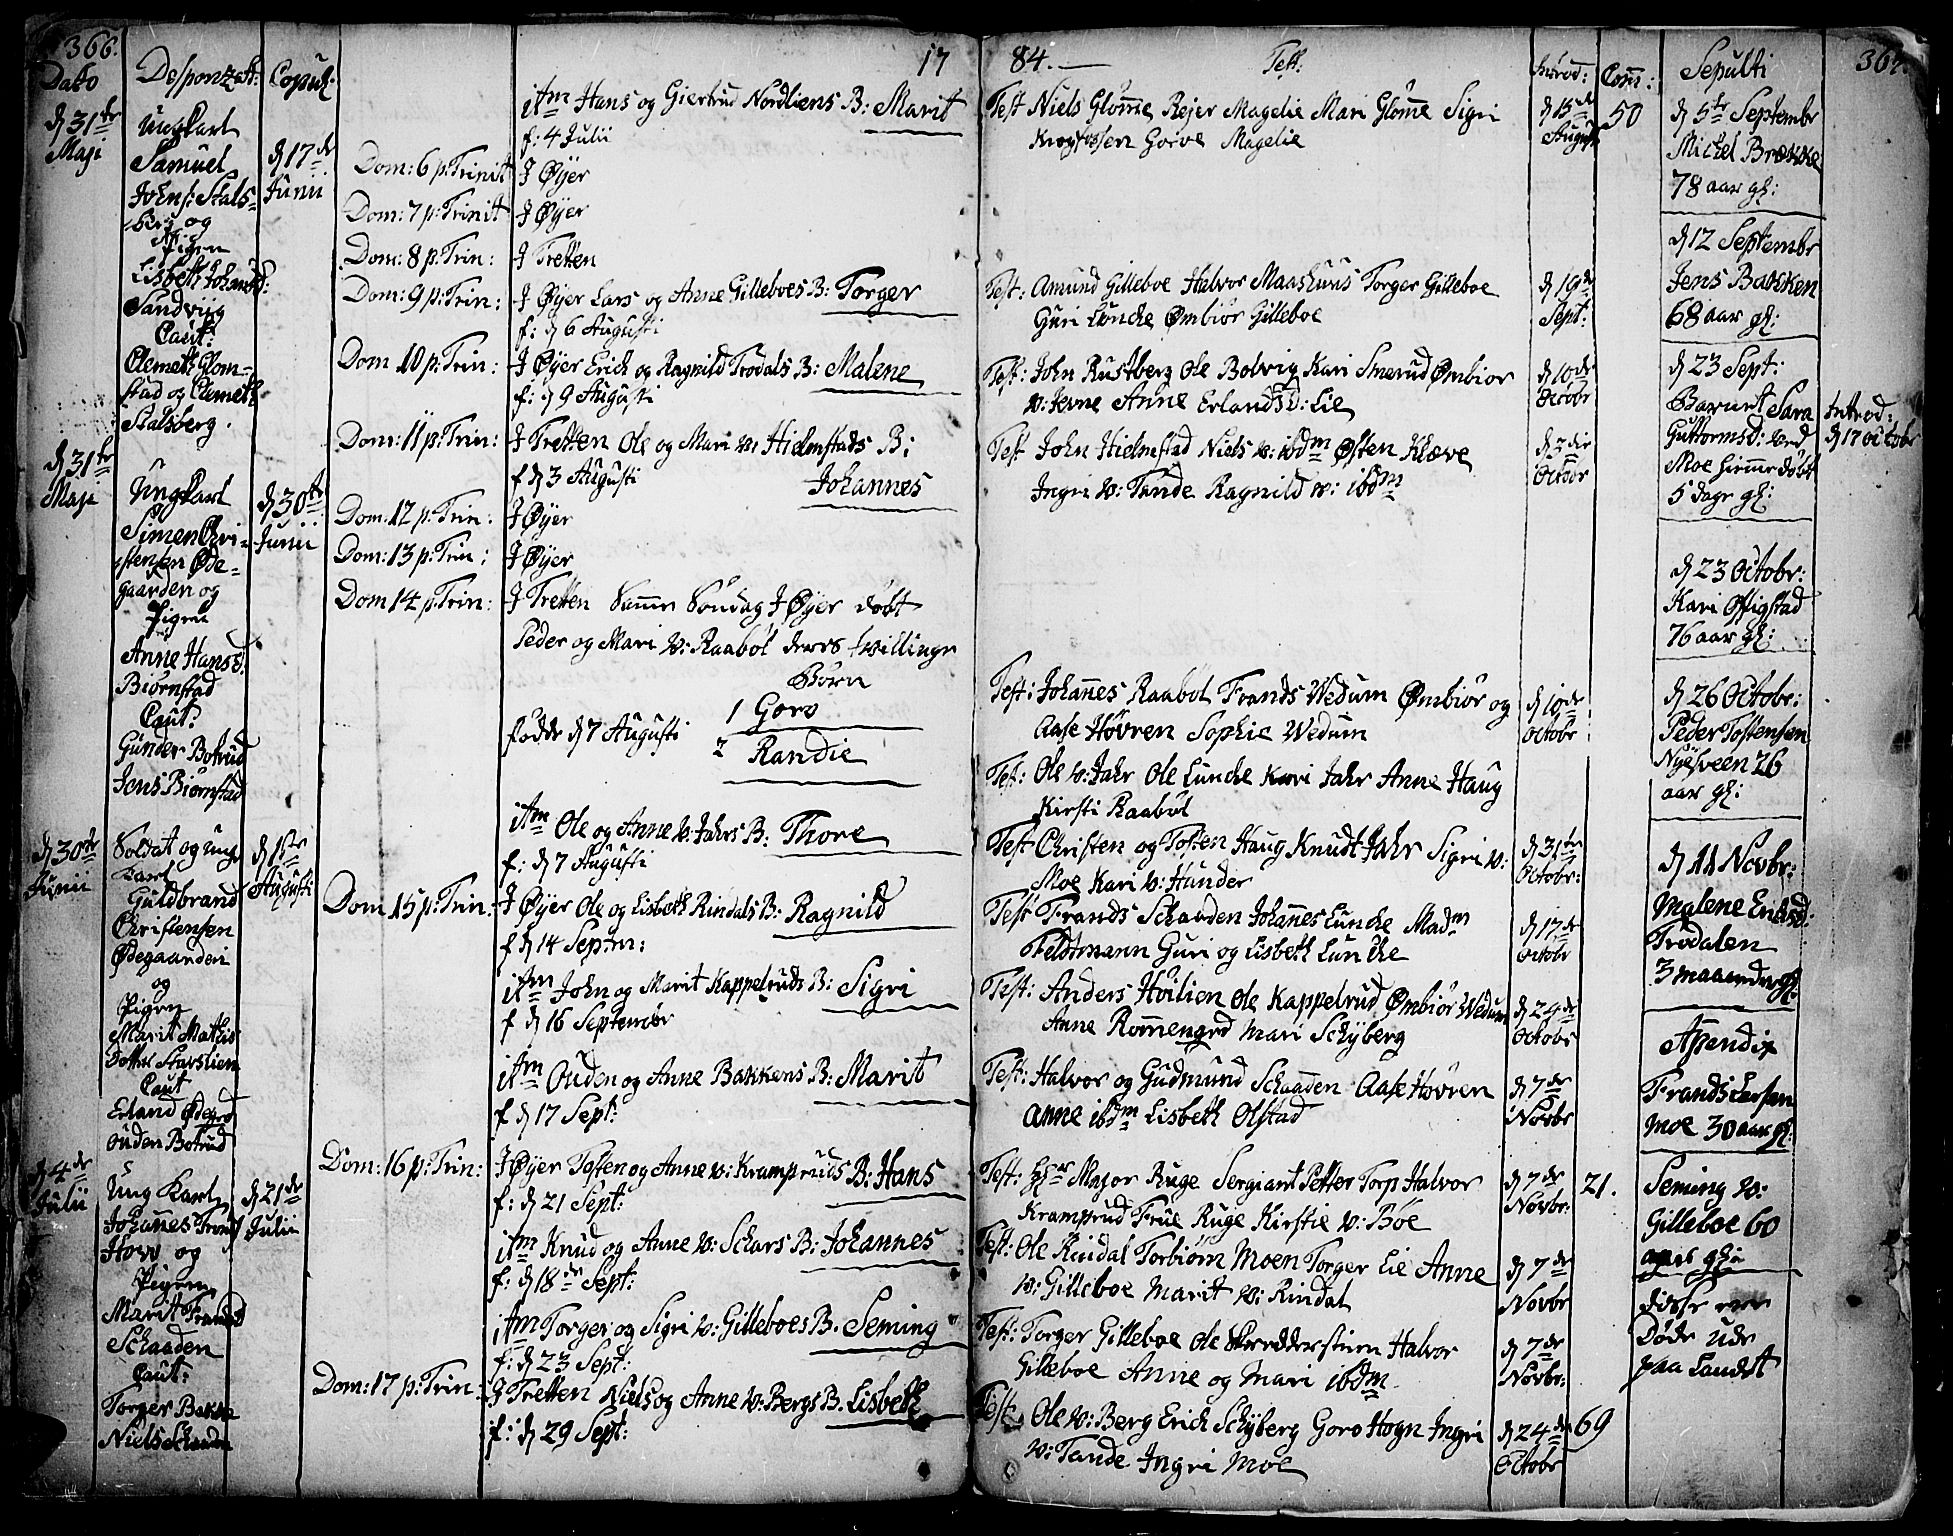 366.
17
84.
367.
Dato
Desponsati:
Copul:
Test:
Introd:
Com̄:
Sepulti
d 31te
Maji
Ungkarl
Samuel
Johns: Stals-
berg og
Pigen
Lisbeth Johansd:
Sandviig
Caut:
Clemeth Glom-
stad og Clemeth
Stalsberg.
d 17de
Junii
d 31te
Maji
Ungkarl
Simen Chri-
stensen Øde-
gaarden og
Pigen
Anne Hansd:
Biørnstad
Caut:
Gunder Botrud
Jens Biørnstad
d 30te
Junii
d 30te
Junii
Soldat og ung
karl
Guldbrand
Christensen
Ødegaarden
og
Pigen
Marit Mathis
Dotter Starslien
Caut
Erland Ødegrd
Ouden Botrud
d 1ste
Augusti
d 4de
Julii
Ung Karl
Johannes Frands
How og
Pigen
Marit Frandsd
Schaaden
Caut:
Torger Bakke
Niels Schaaden
d 21de
Julii
itm Hans og Giertrud Nordliens B: Marit
f: 4 Julii
Dom: 6 p: Trinit J Øyer
Dom: 7 p: Trinit J Øyer
Dom: 8 p: Trin: J Tretten
Dom: 9 p: Trin: J Øyer Lars og Anne Gilleboes B: Torger
f: d 6 Augusti
Dom 10 p: Trin: J Øyer Erich og Ragnild Trodals B: Malene
f: d 9 Augusti
Dom: 11 p: Trin: J Tretten Ole og Mari v: Hielmstads B:
f d 3 Augusti Johannes
Dom: 12 p: Trin: J Øyer
Dom: 13 p: Trin: J Øyer
Dom 14 p: Trin: J Tretten Samme Søndag J Øyer døbt
Peder og Mari v: Raabøl deres tvillinge
Børn
fødde d 7 Augusti 1 Goro
2 Randie
itm Ole og Anne v: Jahrs B: Thore
f: d 7 Augusti
Dom 15 p: Trin: J Øyer Ole og Lisbeth Rindals B: Ragnild
f d 14 Septm:
itm John og Marit Kappelruds B: Sigri
f d 16 September
itm Ouden og Anne Bakkens B: Marit
f d 17 Sept:
Dom: 16 p: Trin: J Øyer Tosten og Anne v: Krampruds B: Hans
f: d 21 Sept:
itm Knud og Anne v: Schars B: Johannes
f: d 18de Sept:
itm Torger og Sigri v: Gilleboes B. Seming
f: d 23 Sept:
Dom: 17 p: Trin: J Tretten Niels og Anne v: Bergs B. Lisbeth
f: d 29 Sept:
Test Niels Glom̄e Rejer Magelie Mari Glom̄e Sigri
Goroe Magelie
d 15de
August
50
Test: Amund Gilleboe Halvor Maashuus Torger Gilleboe
Guri Lunche Ømbiør Gilleboe
d 19de
Sept:
Test: John Rustberg Ole Bolvig Kari Smerud Ømbiør
v: Jevne Anne Erlandsd: Lie
d 10de
Octobr
Test John Hielmstad Niels v: ibdm Østen Kleve
Ingri v: Tande Ragnild v: ibdm
d 3die
Octobr
Test: Johannes Raabøl Frands Wedum Ømbiør og
Aase Høvren Sophie Wedum
d 10de
Octobr
Test: Ole v: Jahr Ole Lunche Kari Jahr Anne Haug
Kirsti Raabøl
Test Christen og Tosten Haug Knudt Jahr Sigri v:
Moe Kari v: Hunder
d 31te
Octobr:
Test Frands Schaaden Johannes Lunche Madm
Feldtmann Guri og Lisbeth Lunche
d 17de
Octobr
Test: Anders Høilien Ole Kappelrud Ømbiør Wedum
Anne Rommengrd Mari Schyberg
d 24de
Octobr
Test: Halvor og Gudmund Schaaden Aase Høvren
Anne ibdm Lisbeth Olstad
d 7de
Novbr
Test: Hr Major Ruge Sergiant Petter Torp Halvor
Kramprud Frue Ruge Kirstie v: Bøe
d 7de
Novbr:
21.
Test: Ole Rindal Torbiørn Moen Torger Lie Anne
v: Gilleboe Marit v: Rindal
d 7de
Novbr
Test: Torger Gilleboe Ole Skredderstuen Halvor
Gilleboe Anne og Mari ibdm.
d 7de
Novbr:
Test: Ole v: Berg Erich Schyberg Goro Hogn Ingri
v: Tande Ingri Moe
d 24de
Octobr
69
d 5te Septembr
Michel Brække
78 aar gl:
d 12 Septembr
Jens Bakken
68 aar gl:
d 23 Sept:
Barnet Sara
Guttormsd: ved
Moe hiemme døbt
5 dage gl:
Introd:
d 17 Octobr
d 23 Octobr:
Kari Ofligstad
76 aar gl:
d 26 Octobr:
Peder Tostensen
Nysveen 26
aar gl:
d 11 Novbr:
Malene Erichsd:
Trodalen
3 maaneder gl:
Apendix
Frands Larsen
Moe 30 aar gl:
Seming v:
Gilleboe 60
aar gl:
disse ere
Døde ude
paa Landet